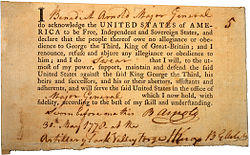 I Benedict Arnold Major General 5
do acknowledge the UNITED STATES of AME-
RICA to be Free, Independent and Sovereign States, and
declare that the people thereof owe no allegiance or obe-
dience to George the Third, King of Great-Britain; and I
renounce, refuse and abjure any allegiance or obedience to
him; and I do Swear that I will, to the ut-
most of my power, support, maintain and defend the said
United States against the said King George the Third, his
heirs and successors, and his or their abettors, assistants and
adherents, and will serve the said United States in the office of
Major General which I now hold, with
fidelity, according to the best of my skill and understanding.
Sworn before me this B Arnold
30th May 1778 at the
Artillery Park Valley Forge H Knox B G Artillery